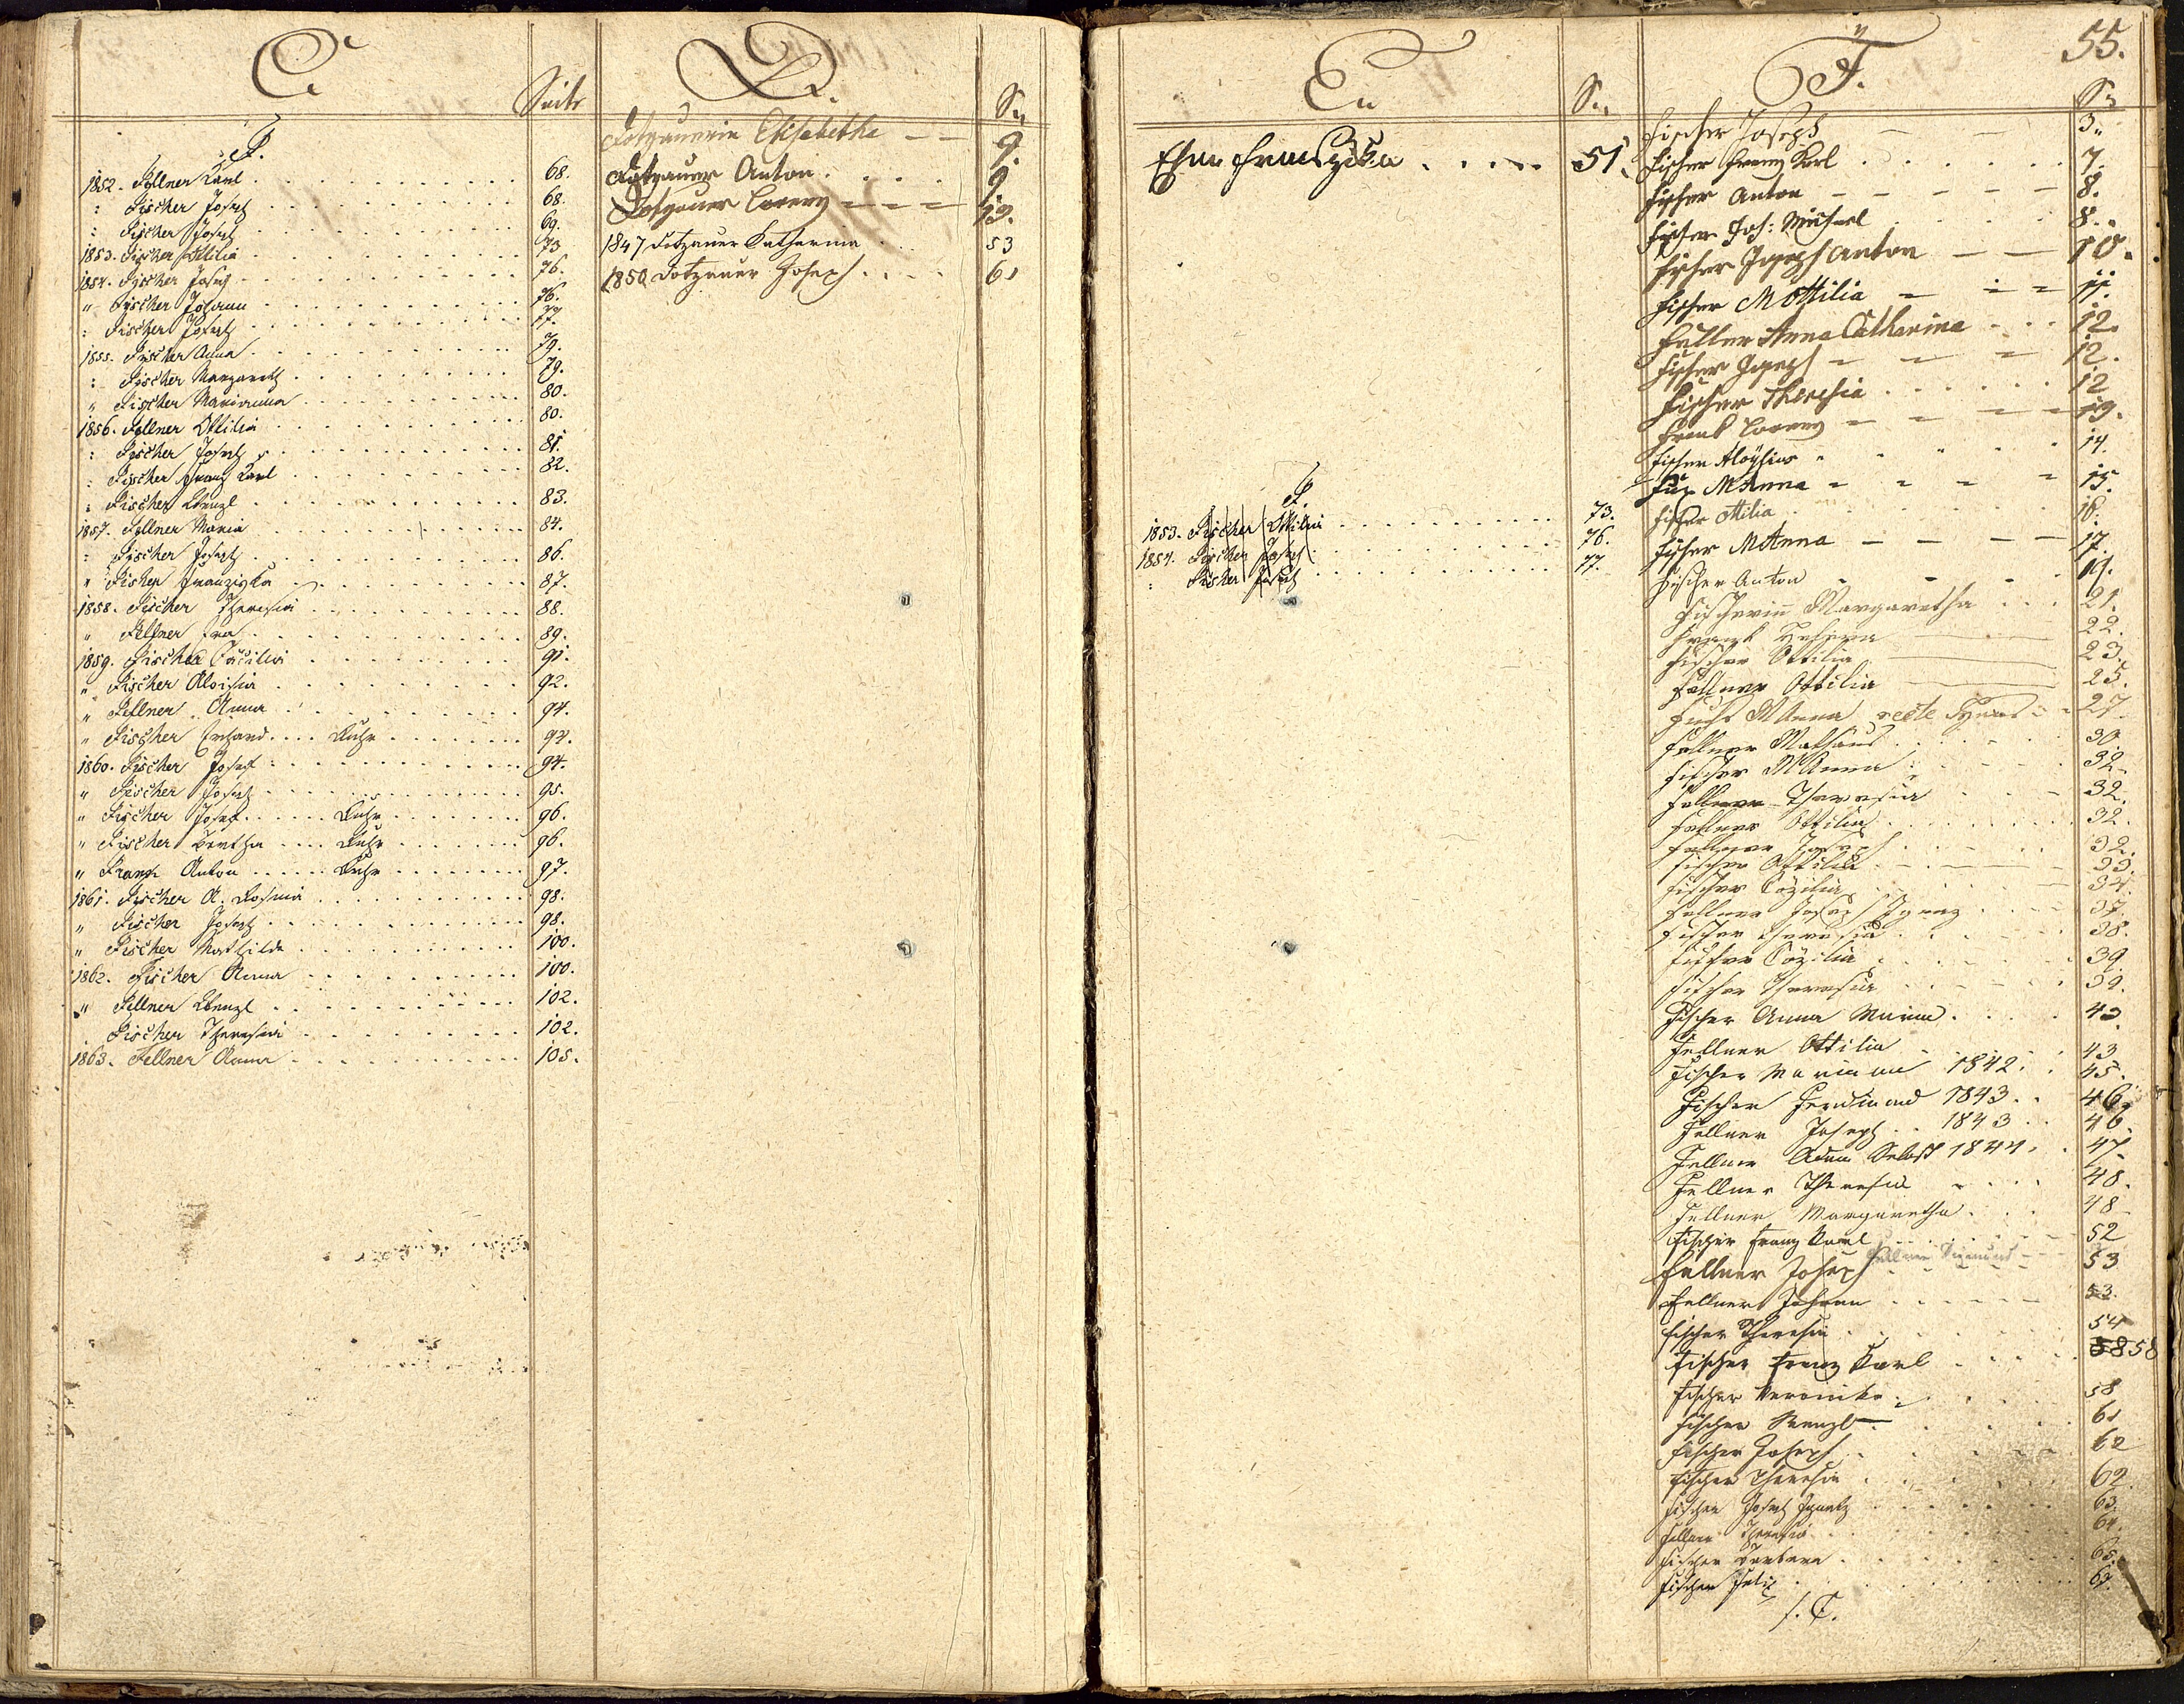 C.
Seite
F.
1852. Fellner Karl 68.
: Fischer Josef 68.
: Fischer Josef 69.
1853. Fischer Ottilia 73
1854. Fischer Josef 76.
" Fischer Johann 76.
: Fischer Josef 77.
1855. Fischer Anna 79.
: Fischer Margareth 79.
" Fischer Marianna 80.
1856. Fellner Ottilia 80.
: Fischer Josef 81.
: Fischer Franz Karl 82.
: Fischer Wenzl 83.
1857. Fellner Maria 84.
: Fischer Josef 86.
" Fischer Franziska 87.
1858. Fischer Theresia 88.
" Fellner Eva 89.
1859. Fischer Cäcilia 91.
" Fischer Aloisia 92.
" Fellner Anna 94.
" Fischer Erhard 94.
1860. Fischer Josef 94.
" Fischer Josef 95.
" Fischer Josef 96.
" Fischer Bertha 96.
" Frank Anton 97.
1861. Fischer A. Rosina 98.
" Fischer Josef 98.
" Fischer Mathilde 100.
1862. Fischer Anna 100.
" Fellner Wenzl 102.
Fischer Theresia 102.
1863. Fellner Anna 105.
D.
S.
Dotzauerin Elisabetha 9.
Dotzauer Anton 9.
Dotzauer Lorenz 13.
1847 Dotzauer Katharina 53
1850 Dotzauer Joseph 61
E
S.
Franziska 51.
F.
1853. Fischer Ottilia 73.
1854. Fischer Josef 76.
: Fischer Josef 77.
F.
55.
S.
Fischer Joseph 3
Fischer Franz Karl 7.
Fischer Anton 8.
Fischer Jos: Michael 8.
Fischer Joseph Anton 10.
Fischer M Ottilia 11.
Anna Catharina 12.
Fischer Joseph 12.
Fischer Theresia 12
Frank Lorenz 13.
Fischer Aloÿsius 14.
M Anna 15.
Fischer Ottilia 16.
Fischer M Anna 17.
Fischer Anton 19.
Fischerin Margaretha 21.
Frank 22.
Fischer Ottilia 23.
Fellner Ottilia 25.
Fuchs M Anna recte 27.
Fellner Mathäus 30.
Fischer M Anna 32.
Fellner Theresia 32.
Fellner Ottilia 32.
Fellner Joseph 32.
Fischer Ottilia 33.
Fischer Cäzilia 34.
Fellner Joseph Ignaz 37.
Fischer Theresia 38.
Fischer Cäzilia 39
Fischer Theresia 39.
Fischer Anna Maria 43
Fellner Ottilia 43
Fischer Mariana 1842 45.
Fischer Ferdinand 1843 46.
Fellner Joseph 1843 46.
Fellner Adam 1844 47.
Fellner Theresia 48.
Fellner Margaretha 48
Fischer Franz Karl 52
Fellner
Fellner Joseph 53
Fellner Johann 53.
Fischer Theresia 54
Fischer Franz Karl 58 58
Fischer Veronika 58
Fischer Wenzl 61
Fischer Joseph 62
Fischer Theresia 62.
Fischer Josef Ignatz 63.
Fellner Theresia 64.
Fischer Barbara 65.
Fischer Felix 67.
f. C.